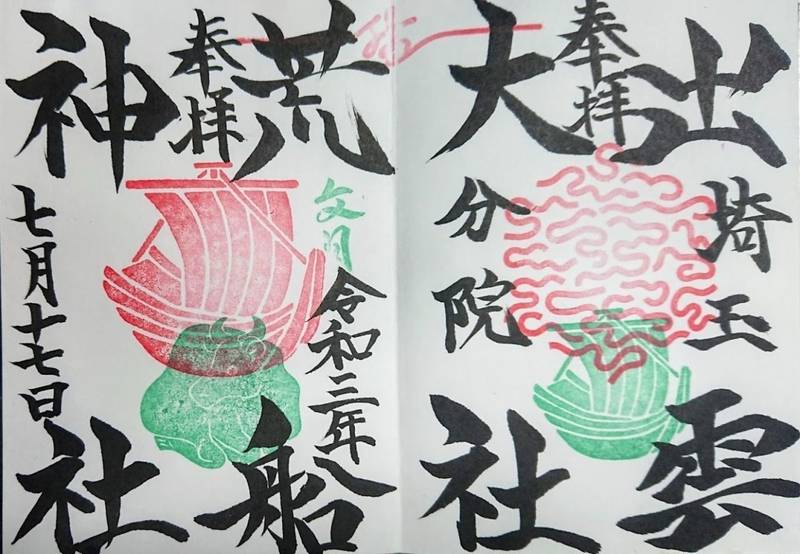 奉拝
出雲
大社
埼玉
分院
奉拝
荒船
神社
文月
令和三年
七月十七日